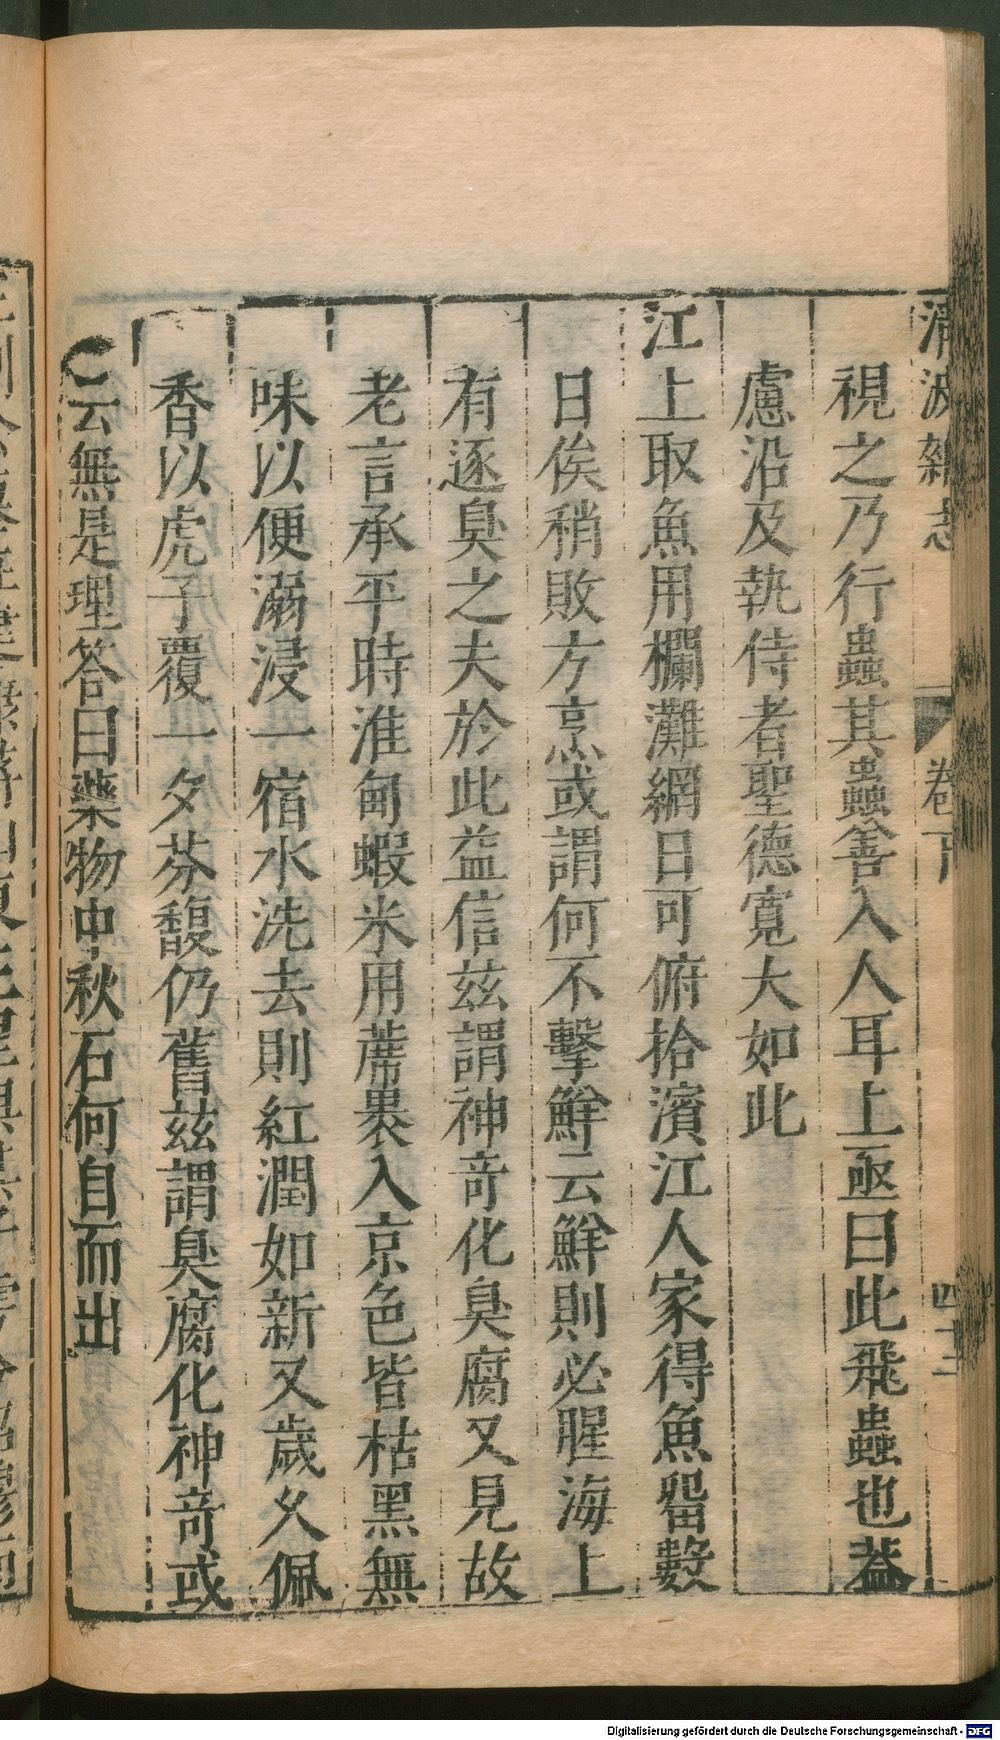 清波雜志 卷下 四十二
視之乃行蟲其蟲善入人耳上亟曰此飛蟲也葢
慮沿及執侍者聖德寬大如此
江上取魚用欄灘網日可俯拾濱江人家得魚畱數
日俟稍敗方烹或謂何不擊鮮云鮮則必腥海上
有逐臭之夫於此益信茲謂神奇化臭腐又見故
老言承平時淮甸蝦米用蓆褁入京色皆枯黑無
味以便溺浸一宿水洗去則紅潤如新又歲久佩
香以虎子覆一夕芬馥仍舊茲謂臭腐化神奇或
云無是理答曰藥物中秋石何自而出
Digitalisierung gefördert durch die Deutsche Forschungsgemeinschaft - DFG